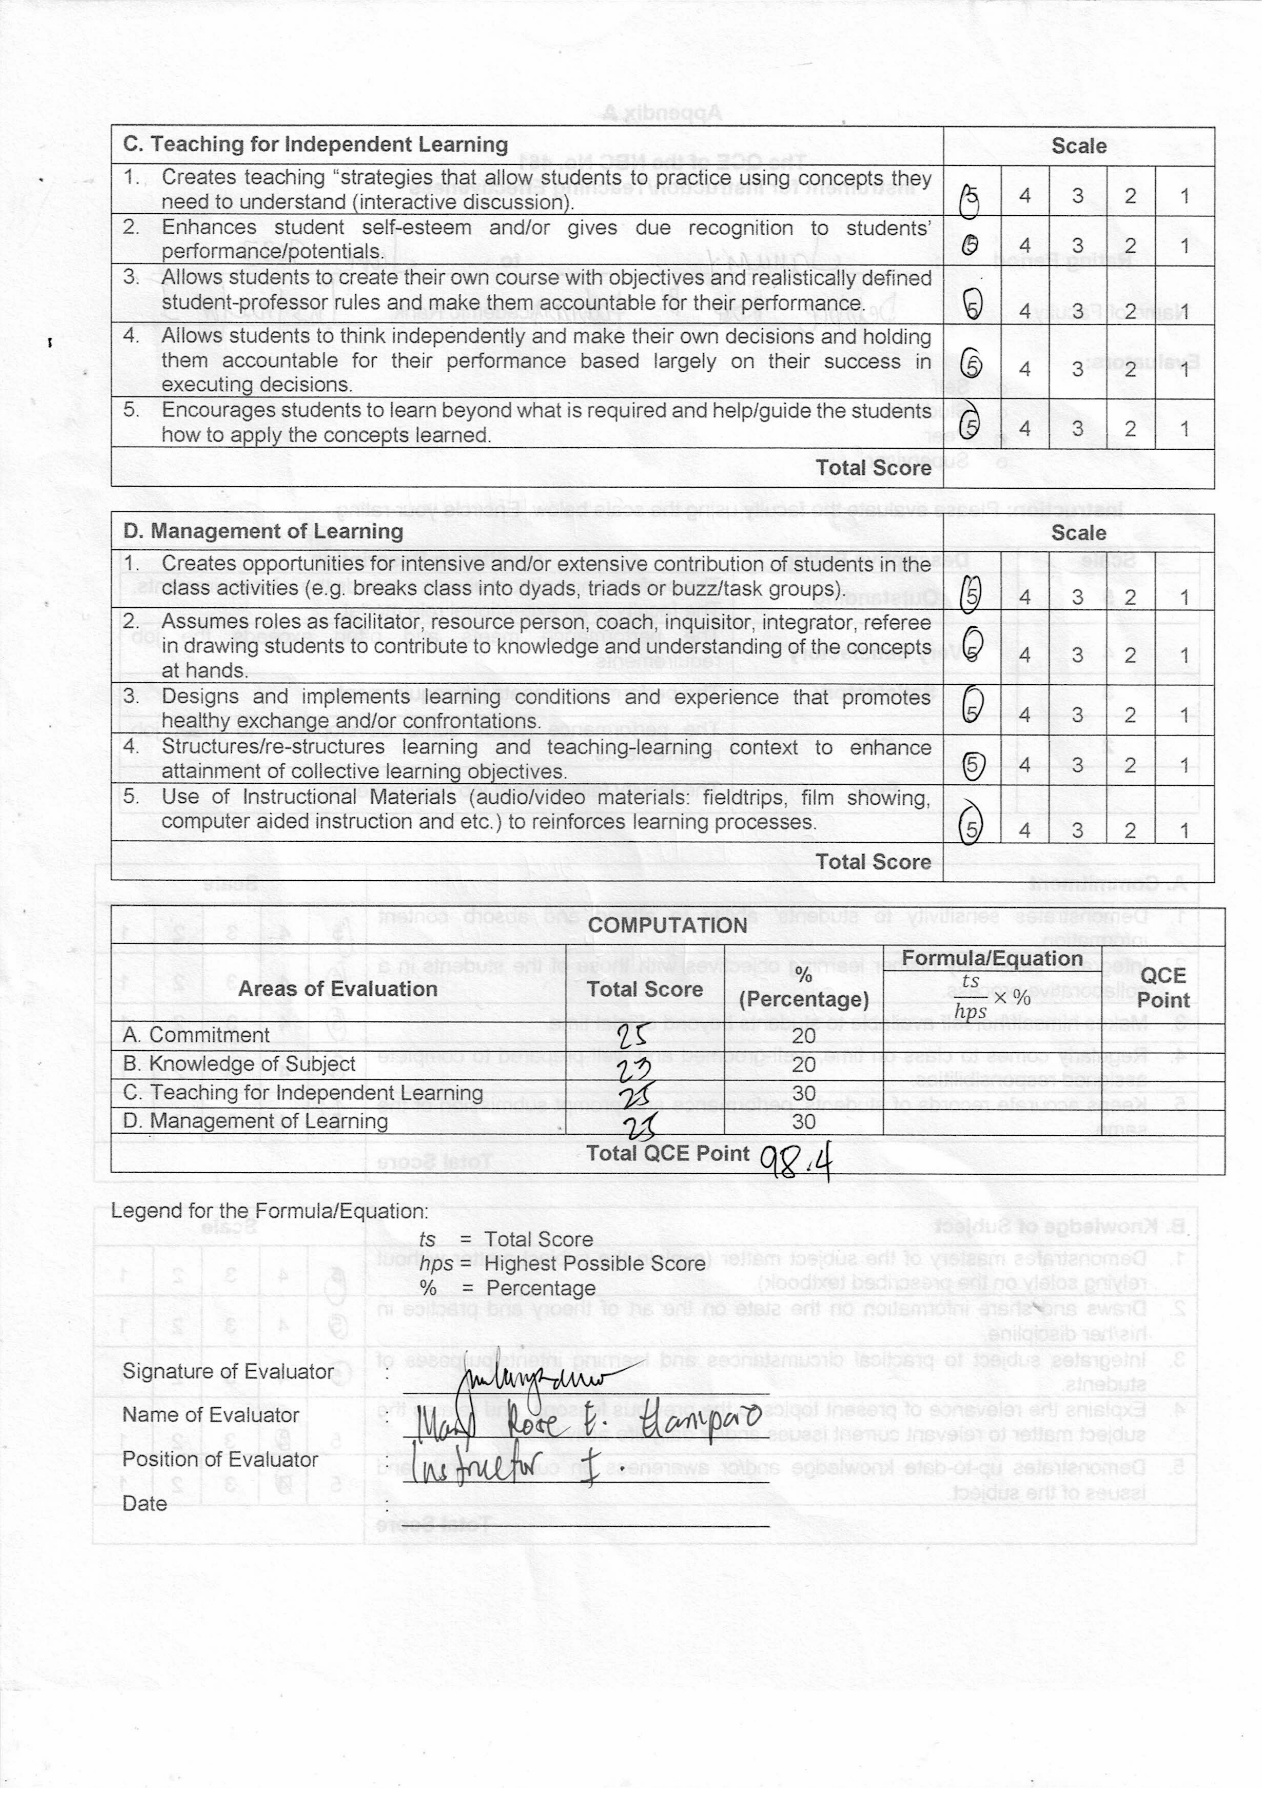 C. Teaching for Independent Learning Scale
1. Creates teaching “strategies that allow students to practice using concepts they
need to understand (interactive discussion). 5 4 3 2 1
2. Enhances student self-esteem and/or gives due recognition to students’
performance/potentials. 5 4 3 2 1
3. Allows students to create their own course with objectives and realistically defined
student-professor rules and make them accountable for their performance. 5 4 3 2 1
4. Allows students to think independently and make their own decisions and holding
them accountable for their performance based largely on their success in 5 4 3 2 1
executing decisions.
5. Encourages students to learn beyond what is required and help/guide the students
how to apply the concepts learned. 5 4 3 2 1
Total Score
D. Management of Learning Scale
1. Creates opportunities for intensive and/or extensive contribution of students in the
class activities (e.g. breaks class into dyads, triads or buzz/task groups). 5 4 3 2 1
2. Assumes roles as facilitator, resource person, coach, inquisitor, integrator, referee
in drawing students to contribute to knowledge and understanding of the concepts 5 4 3 2 1
at hands.
3. Designs and implements learning conditions and experience that promotes
healthy exchange and/or confrontations. 5 4 3 2 1
4. Structures/re-structures learning and teaching-learning context to enhance
attainment of collective learning objectives. 5 4 3 2 1
5. Use of Instructional Materials (audio/video materials: fieldtrips, film showing,
computer aided instruction and etc.) to reinforces learning processes. 5 4 3 2 1
Total Score
COMPUTATION
Areas of Evaluation Total Score % (Percentage) Formula/Equation ts/hps × % QCE Point
A. Commitment 25 20
B. Knowledge of Subject 23 20
C. Teaching for Independent Learning 25 30
D. Management of Learning 25 30
Total QCE Point 98.4
Legend for the Formula/Equation:
ts = Total Score
hps = Highest Possible Score
% = Percentage
Signature of Evaluator :
Name of Evaluator : Mary Rose E.
Position of Evaluator : Instructor I.
Date :